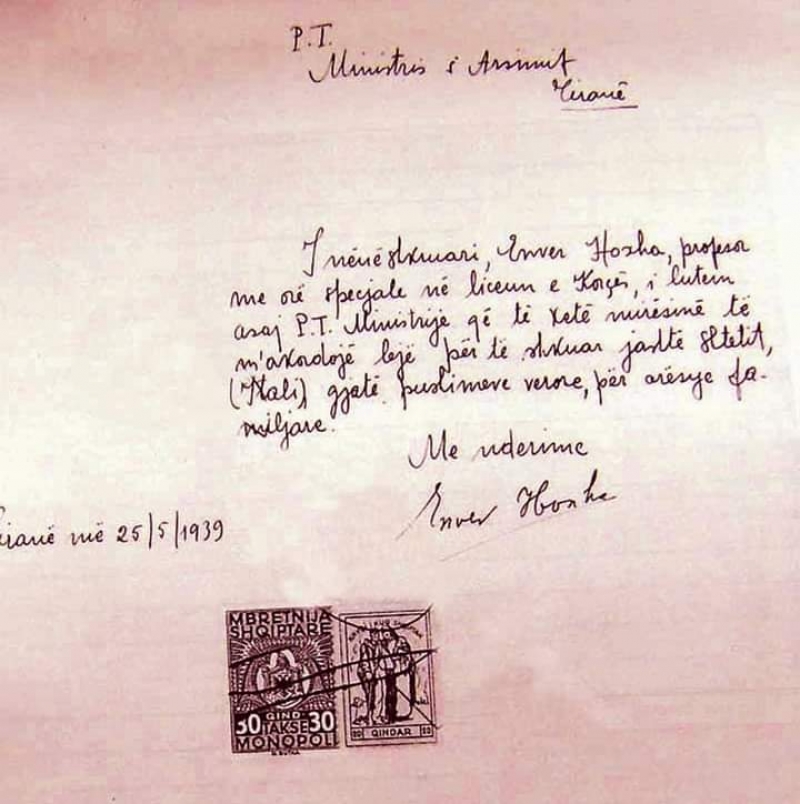 P.T.
Ministris s' Arsimit
Tiranë
I nënëshkruari, Enver Hoxha, profesor
me orë specjale në liceun e Korçës, i lutem
asaj P.T. Ministrije që të ketë mirësinë të
m'akordojë lejë për të shkuar jashtë Shtetit,
(Itali) gjatë pushimeve verore, për arësye fa-
miljare.
Me nderime
Enver Hoxha
iranë më 25/5/1939
MBRETNIJA
SHQIPTARE
30 QIND 30
TAKSE
MONOPOLI
20 QINDAR 20